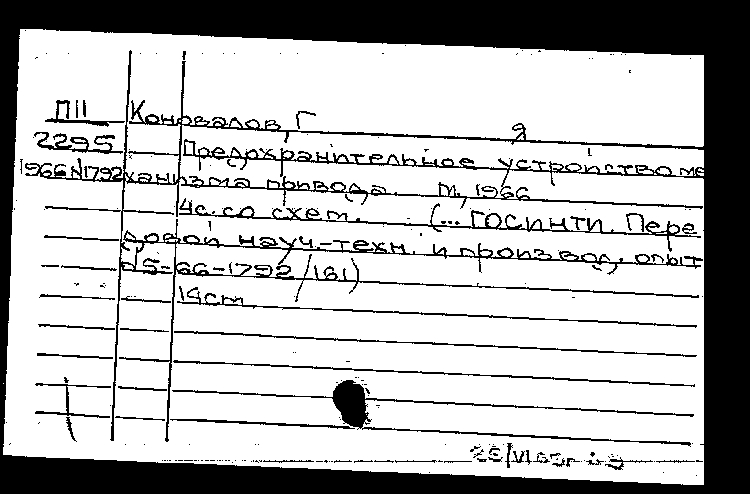 ПII Коновалов, Г
Я
2295 Предохранительное устройство ме
1966 N1792 ханизма привода. М, 1966
4с. со схем. (... ГОСИНТИ. Пере
довой науч.-техн. и производ. опыт
N5-66-1792/161)
14см.